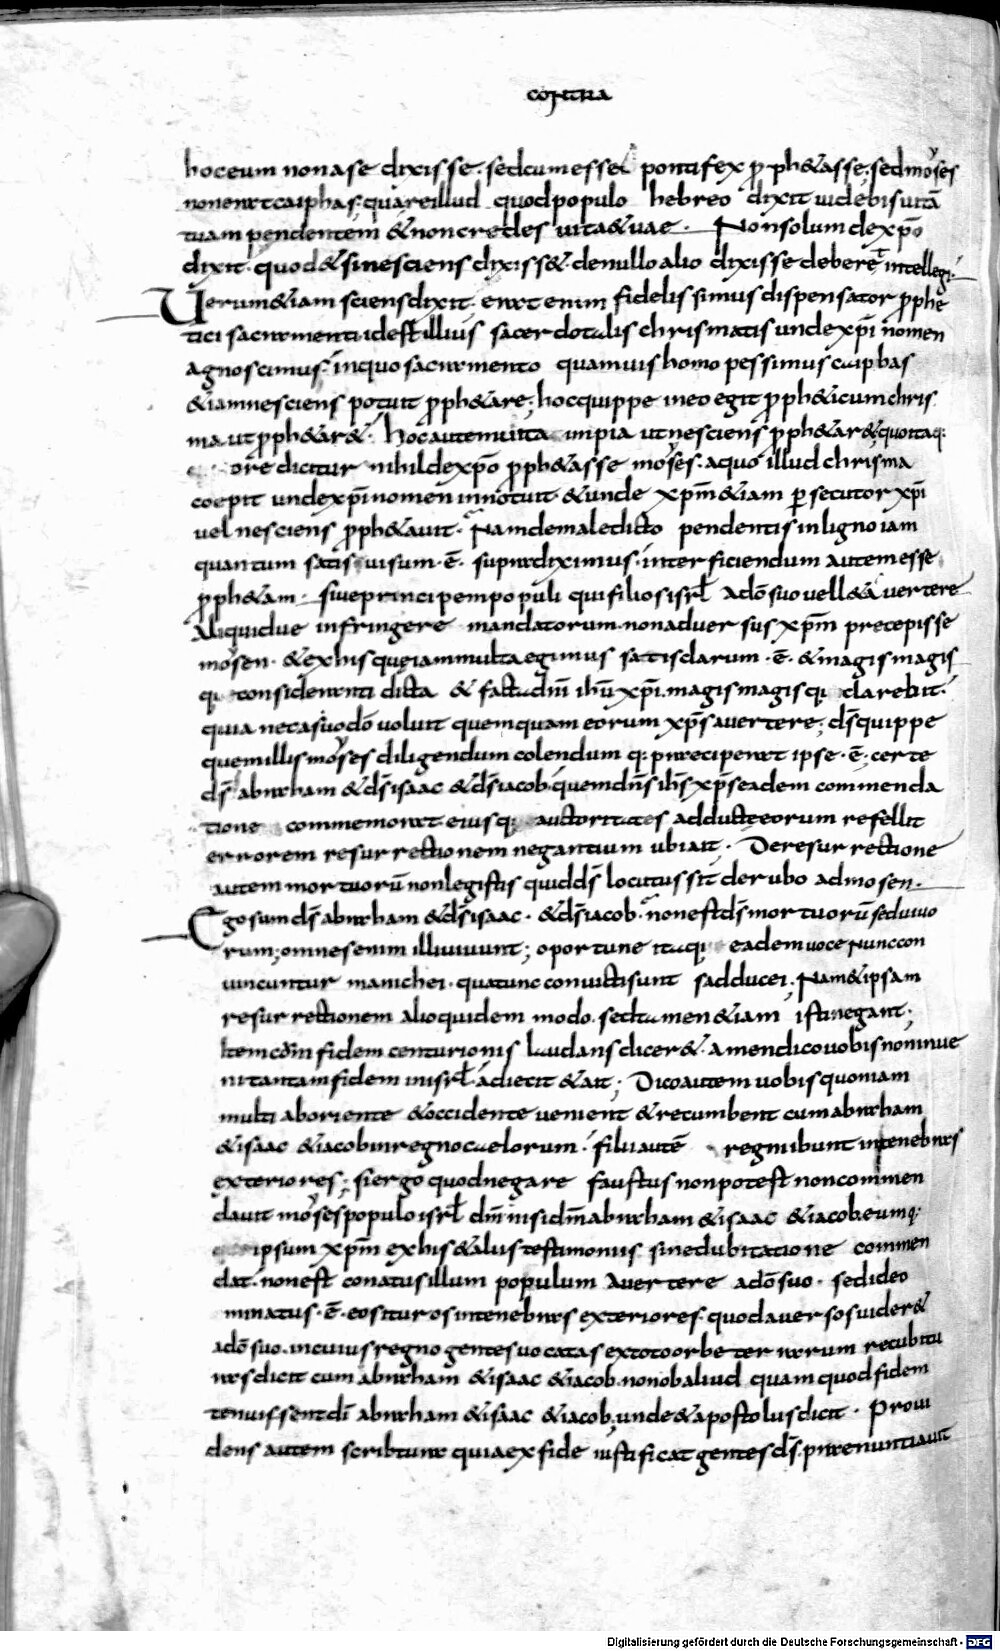 contra
hoc eum non a se dixisse · sed cum esset pontifex ꝓph&asse; sed moyses
non erat caiphas; quare illud quod populo hebreo dixit uidebis uitā
tuam pendentem & non credes uitae tuae · Non solum de xp̄o
dixit · quod & si nesciens dixiss& · de nullo alio dixisse deberet intellegi ·
Uerum &iam sciens dixit · erat enim fidelissimus dispensator ꝓphe
tici sacramenti id est illius sacerdotalis chrismatis unde xp̄i nomen
agnoscimus · in quo sacramento quamuis homo pessimus caiphas
&iam nesciens potuit ꝓph&are; hoc quippe in eo egit ꝓph&icum chris
ma ut ꝓph&ar& · hoc autem uita impia ut nesciens ꝓph&ar&
ore dicitur nihil de xp̄o ꝓph&asse moyses · a quo illud chrisma
coepit unde xp̄i nomen innotuit · & unde xp̄m &iam persecutor xp̄i
uel nesciens ꝓph&auit · Nam de maledicto pendentis in ligno iam
quantum satis uisum · ē · supra diximus · interficiendum autem esse
ꝓph&am · siue principem populi qui filios isrl̄ a dō suo uell& auertere
aliquid ue infringere mandatorum · non aduersus xp̄m precepisse
moysen · & ex his que iam multa egimus satis clarum · ē · & magis magis
q; consideranti dicta & facta dn̄i ih̄u xp̄i · magis magisq; clarebit ·
quia nec a suo dō uoluit quemquam eorum xp̄s auertere; ds̄ quippe
quem illis moyses diligendum colendum q; praeciperat ipse · ē · certe
ds̄ abraham & ds̄ isaac & ds̄ iacob · quem dn̄s ih̄s xp̄s eadem commenda
tione commemorat · eiusq; auctoritates adducte eorum refellit
errorem resurrectionem negantium ubi ait · De resurrectione
autem mortuorū non legistis quid ds̄ locutus sit de rubo ad mosen ·
Ego sum ds̄ abraham & ds̄ isaac · & ds̄ iacob · non est ds̄ mortuorū sed uiuo
rum; omnes enim illi uiuunt; oportune itaq; eadem uoce nunc con
uincuntur manichei · qua tunc conuicti sunt sadducei; Nam & ipsam
resurrectionem alio quidem modo · sed tamen &iam isti negant;
Item cū fidem centurionis laudans dicer& · amen dico uobis non inue
ni tantam fidem in isrl̄ · adiecit & ait; Dico autem uobis quoniam
multi ab oriente & occidente uenient & recumbent cum abraham
& isaac & iacob in regno caelorum · filii autē regni ibunt in tenebras
exteriores; si ergo quod negare faustus non potest non commen
dauit moyses populo isrl̄ dm̄ nisi dm̄ abraham & isaac & iacob · eumq;
ipsum xp̄m ex his & aliis testimoniis sine dubitatione commen
dat · non est conatus illum populum auertere a dō suo · sed ideo
minatus · ē · eos ituros in tenebras exteriores · quod auersos uider&
a dō suo · in cuius regno gentes uocatas ex toto orbe terrarum recubitu
ras dicit cum abraham & isaac & iacob · non ob aliud quam quod fidem
tenuissent dī abraham & isaac & iacob; unde & apostolus dicit · Proui
dens autem scribtura quia ex fide iustificat gentes ds̄ · praenuntiauit